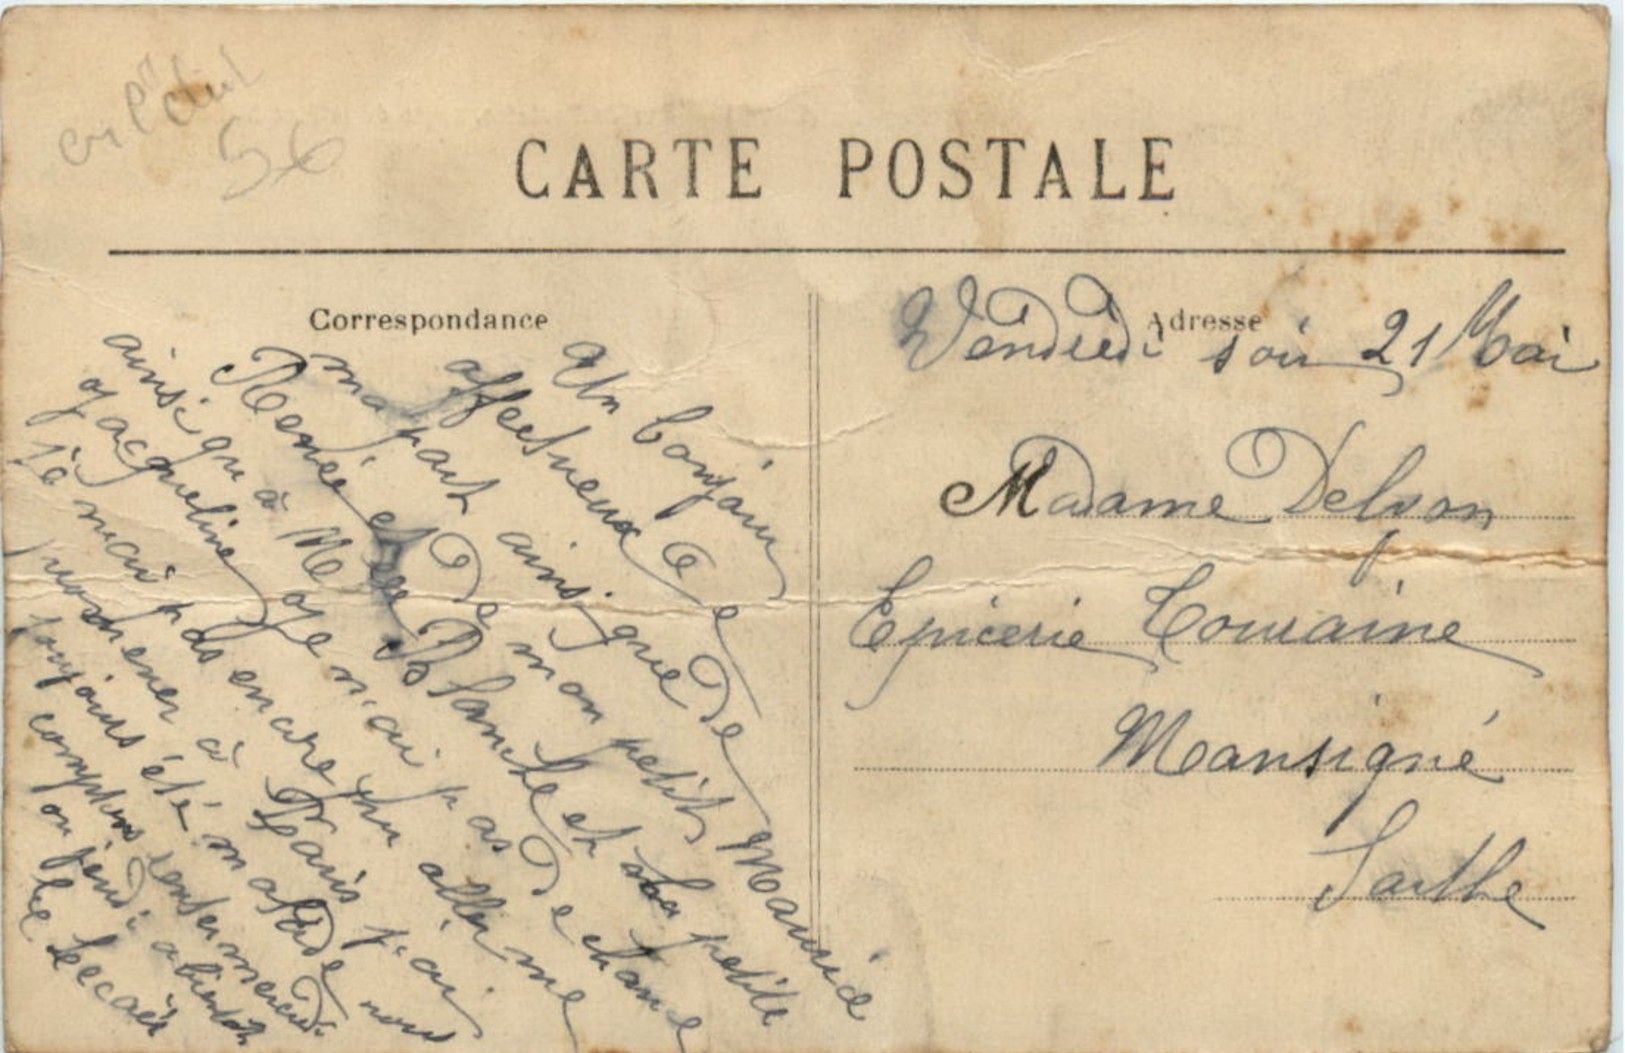 56
CARTE POSTALE
Correspondance
Adresse
Vendredi soir 21 Mai
Madame Delpon
Epicerie Touraine
Mansigné
Sarthe
Un bonjour
affectueux de
ma part ainsi que de
Renée et de mon petit Maurice
ainsi qu'à Me Blanche et sa petite
Jacqueline je n'ai pas de chance
je n'ai pas encore pu aller me
promener à Paris j'ai
toujours été malade nous
comptons rentrer mercredi
ou jeudi a bientôt